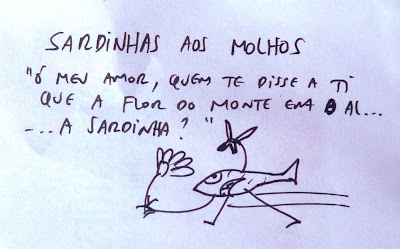 SARDINHAS AOS MOLHOS
"Ó MEU AMOR, QUEM TE DISSE A TI
QUE A FLOR DO MONTE ERA O AL...
-... A SARDINHA?"